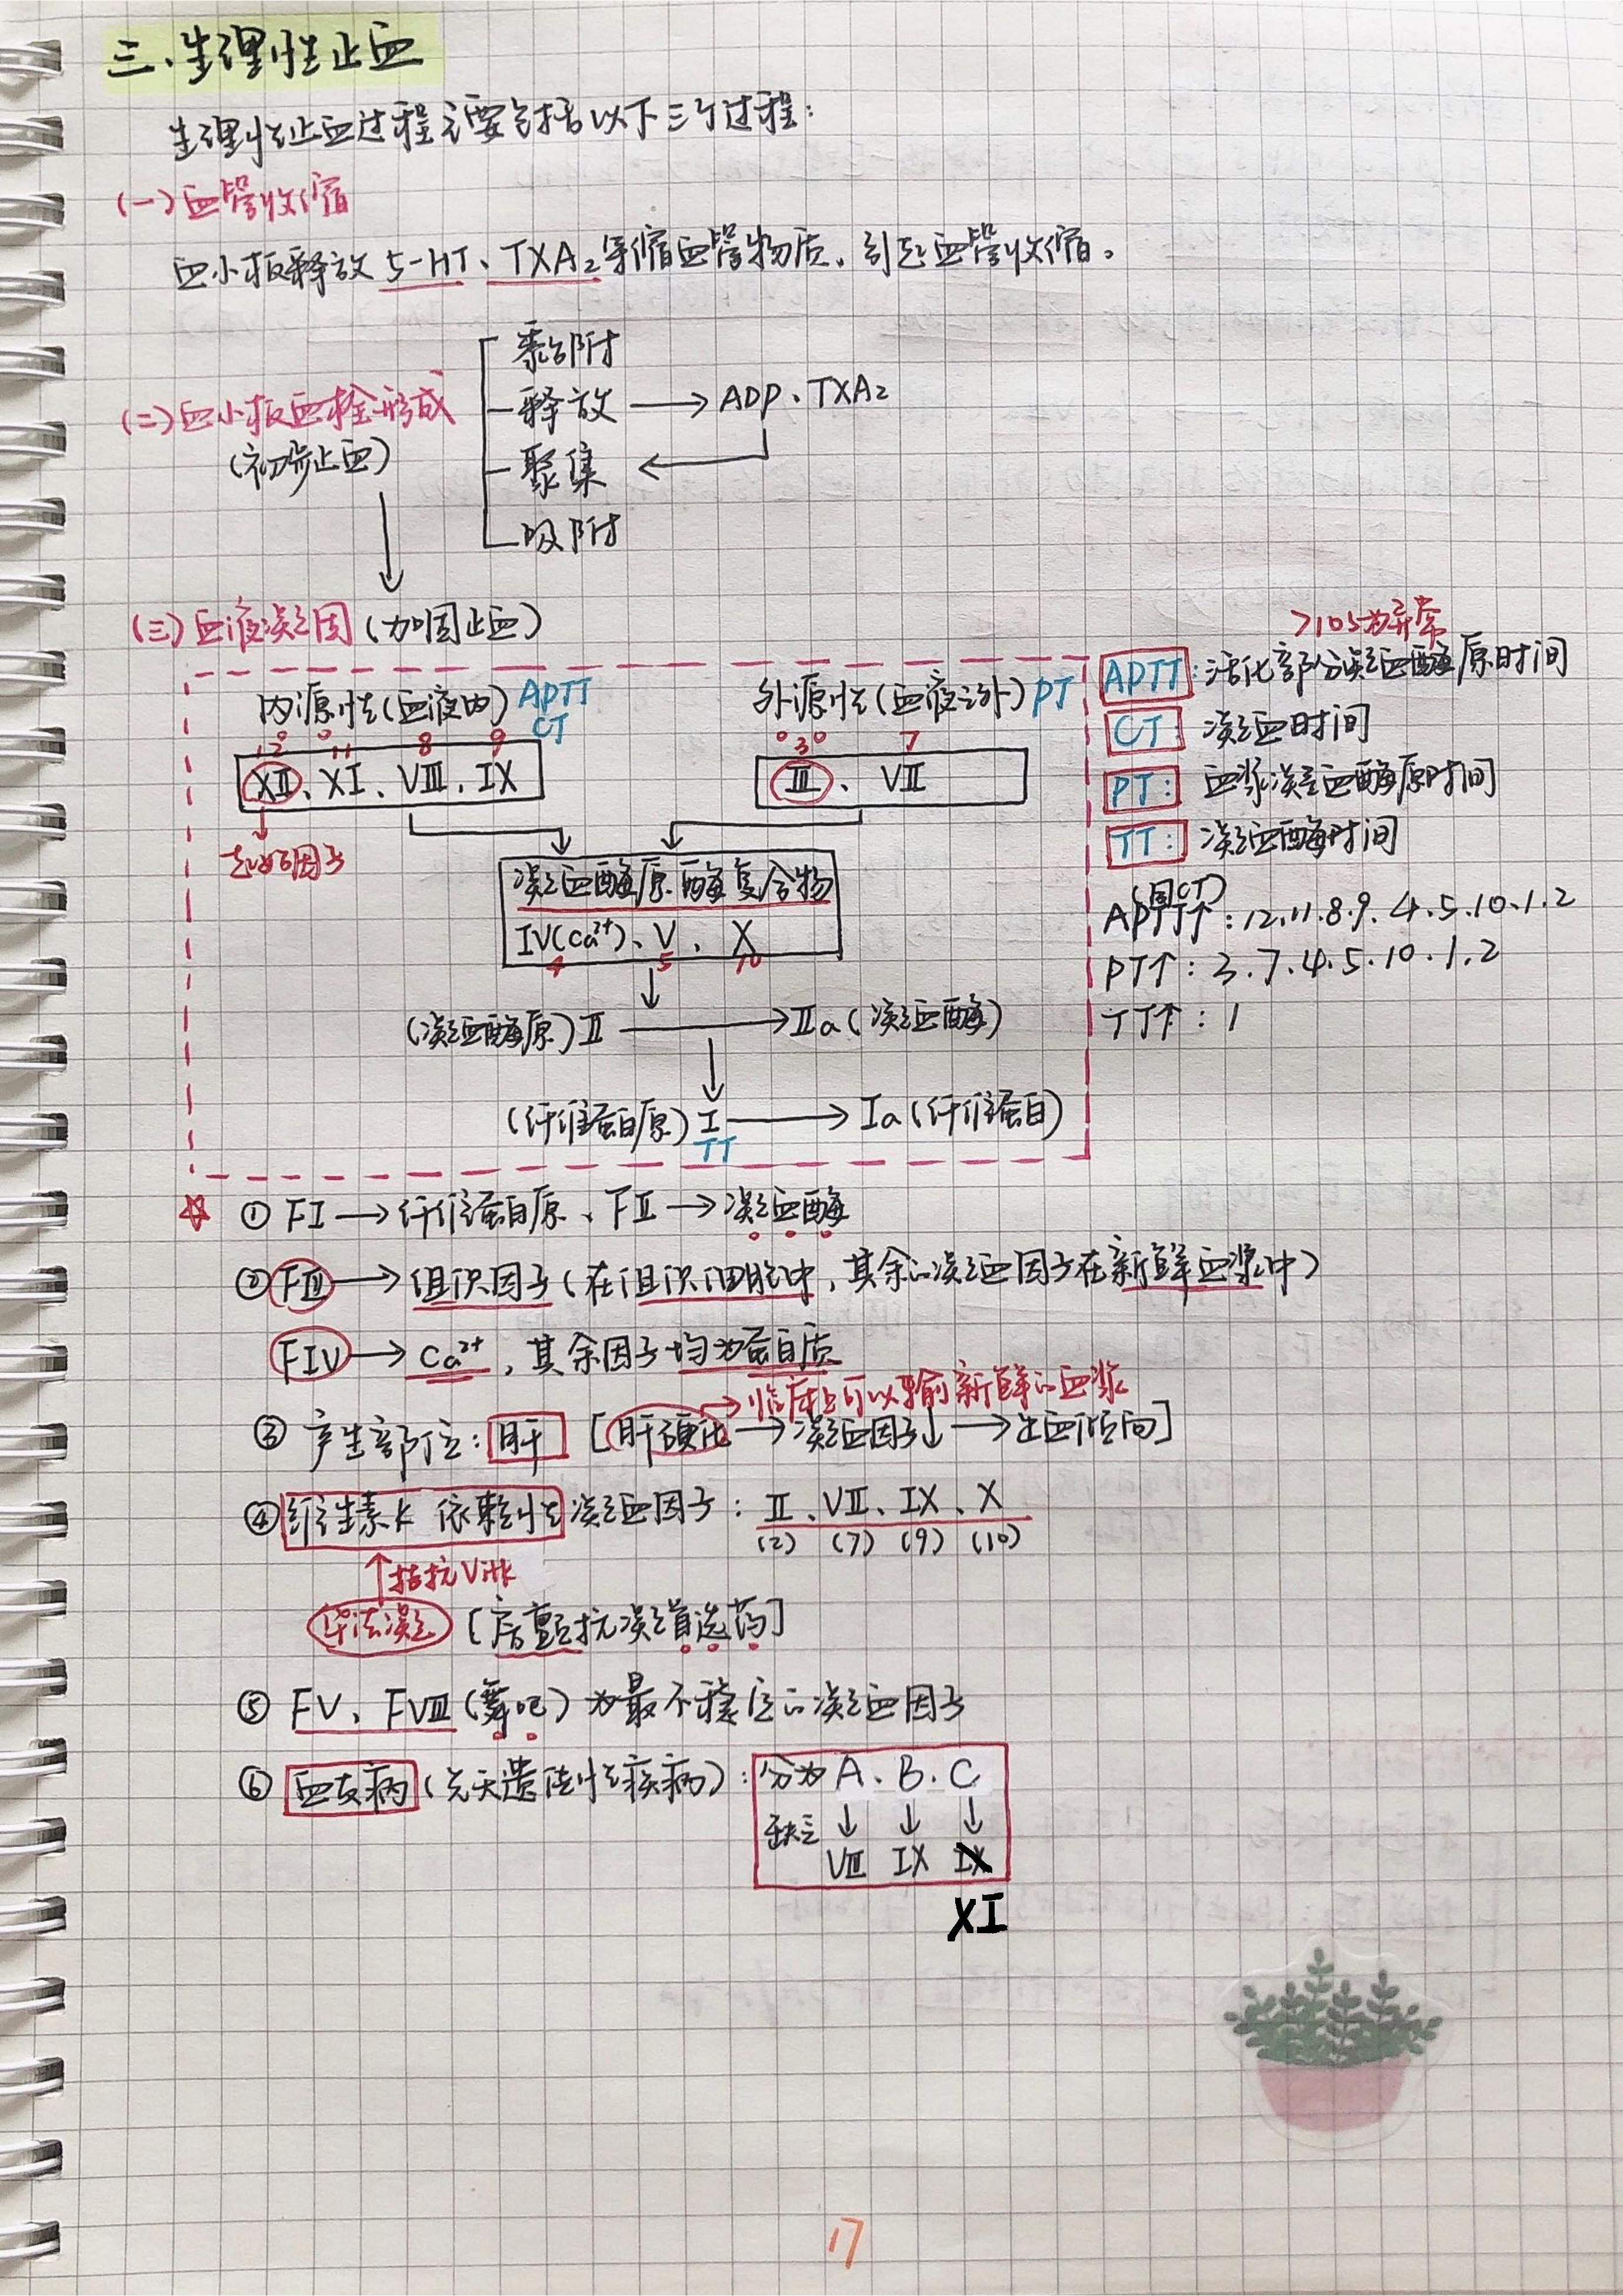 三、生理性止血
生理性止血过程主要包括以下三个过程：
(一)血管收缩
血小板释放 5-HT、TXA₂等缩血管物质，引起血管收缩。
黏附
(二)血小板血栓形成
释放 → ADP、TXA₂
(初步止血)
聚集 ←
吸附
(三)血液凝固(加固止血)
>10s为异常
APTT：活化部分凝血酶原时间
内源性(血液内) APTT
CT
外源性(血液之外) PT
CT：凝血时间
12 11 8 9
3 7
XII、XI、VIII、IX
III、VII
PT：血浆凝血酶原时间
起始因子
TT：凝血酶时间
凝血酶原酶复合物
IV(Ca²⁺)、V、X
4 5 10
(同CT)
APTT↑：12.11.8.9.4.5.10.1.2
PT↑：3.7.4.5.10.1.2
TT↑：1
(凝血酶原)II → IIa(凝血酶)
(纤维蛋白原) I → Ia(纤维蛋白)
TT
☆ ① FI → 纤维蛋白原、FII → 凝血酶
② FIII → 组织因子(在组织细胞中，其余的凝血因子在新鲜血浆中)
FIV → Ca²⁺，其余因子均为蛋白质
→临床上可以输新鲜的血浆
③ 产生部位：肝 [肝硬化 → 凝血因子↓ → 出血倾向]
④ 维生素K 依赖性凝血因子：II、VII、IX、X
(2) (7) (9) (10)
↑拮抗Vitk
华法凝 [房颤抗凝首选药]
⑤ FV、FVIII(舞吧)为最不稳定的凝血因子
⑥ 血友病(先天遗传性疾病)：分为 A、B、C
缺乏 ↓ ↓ ↓
VIII IX IX
XI
17